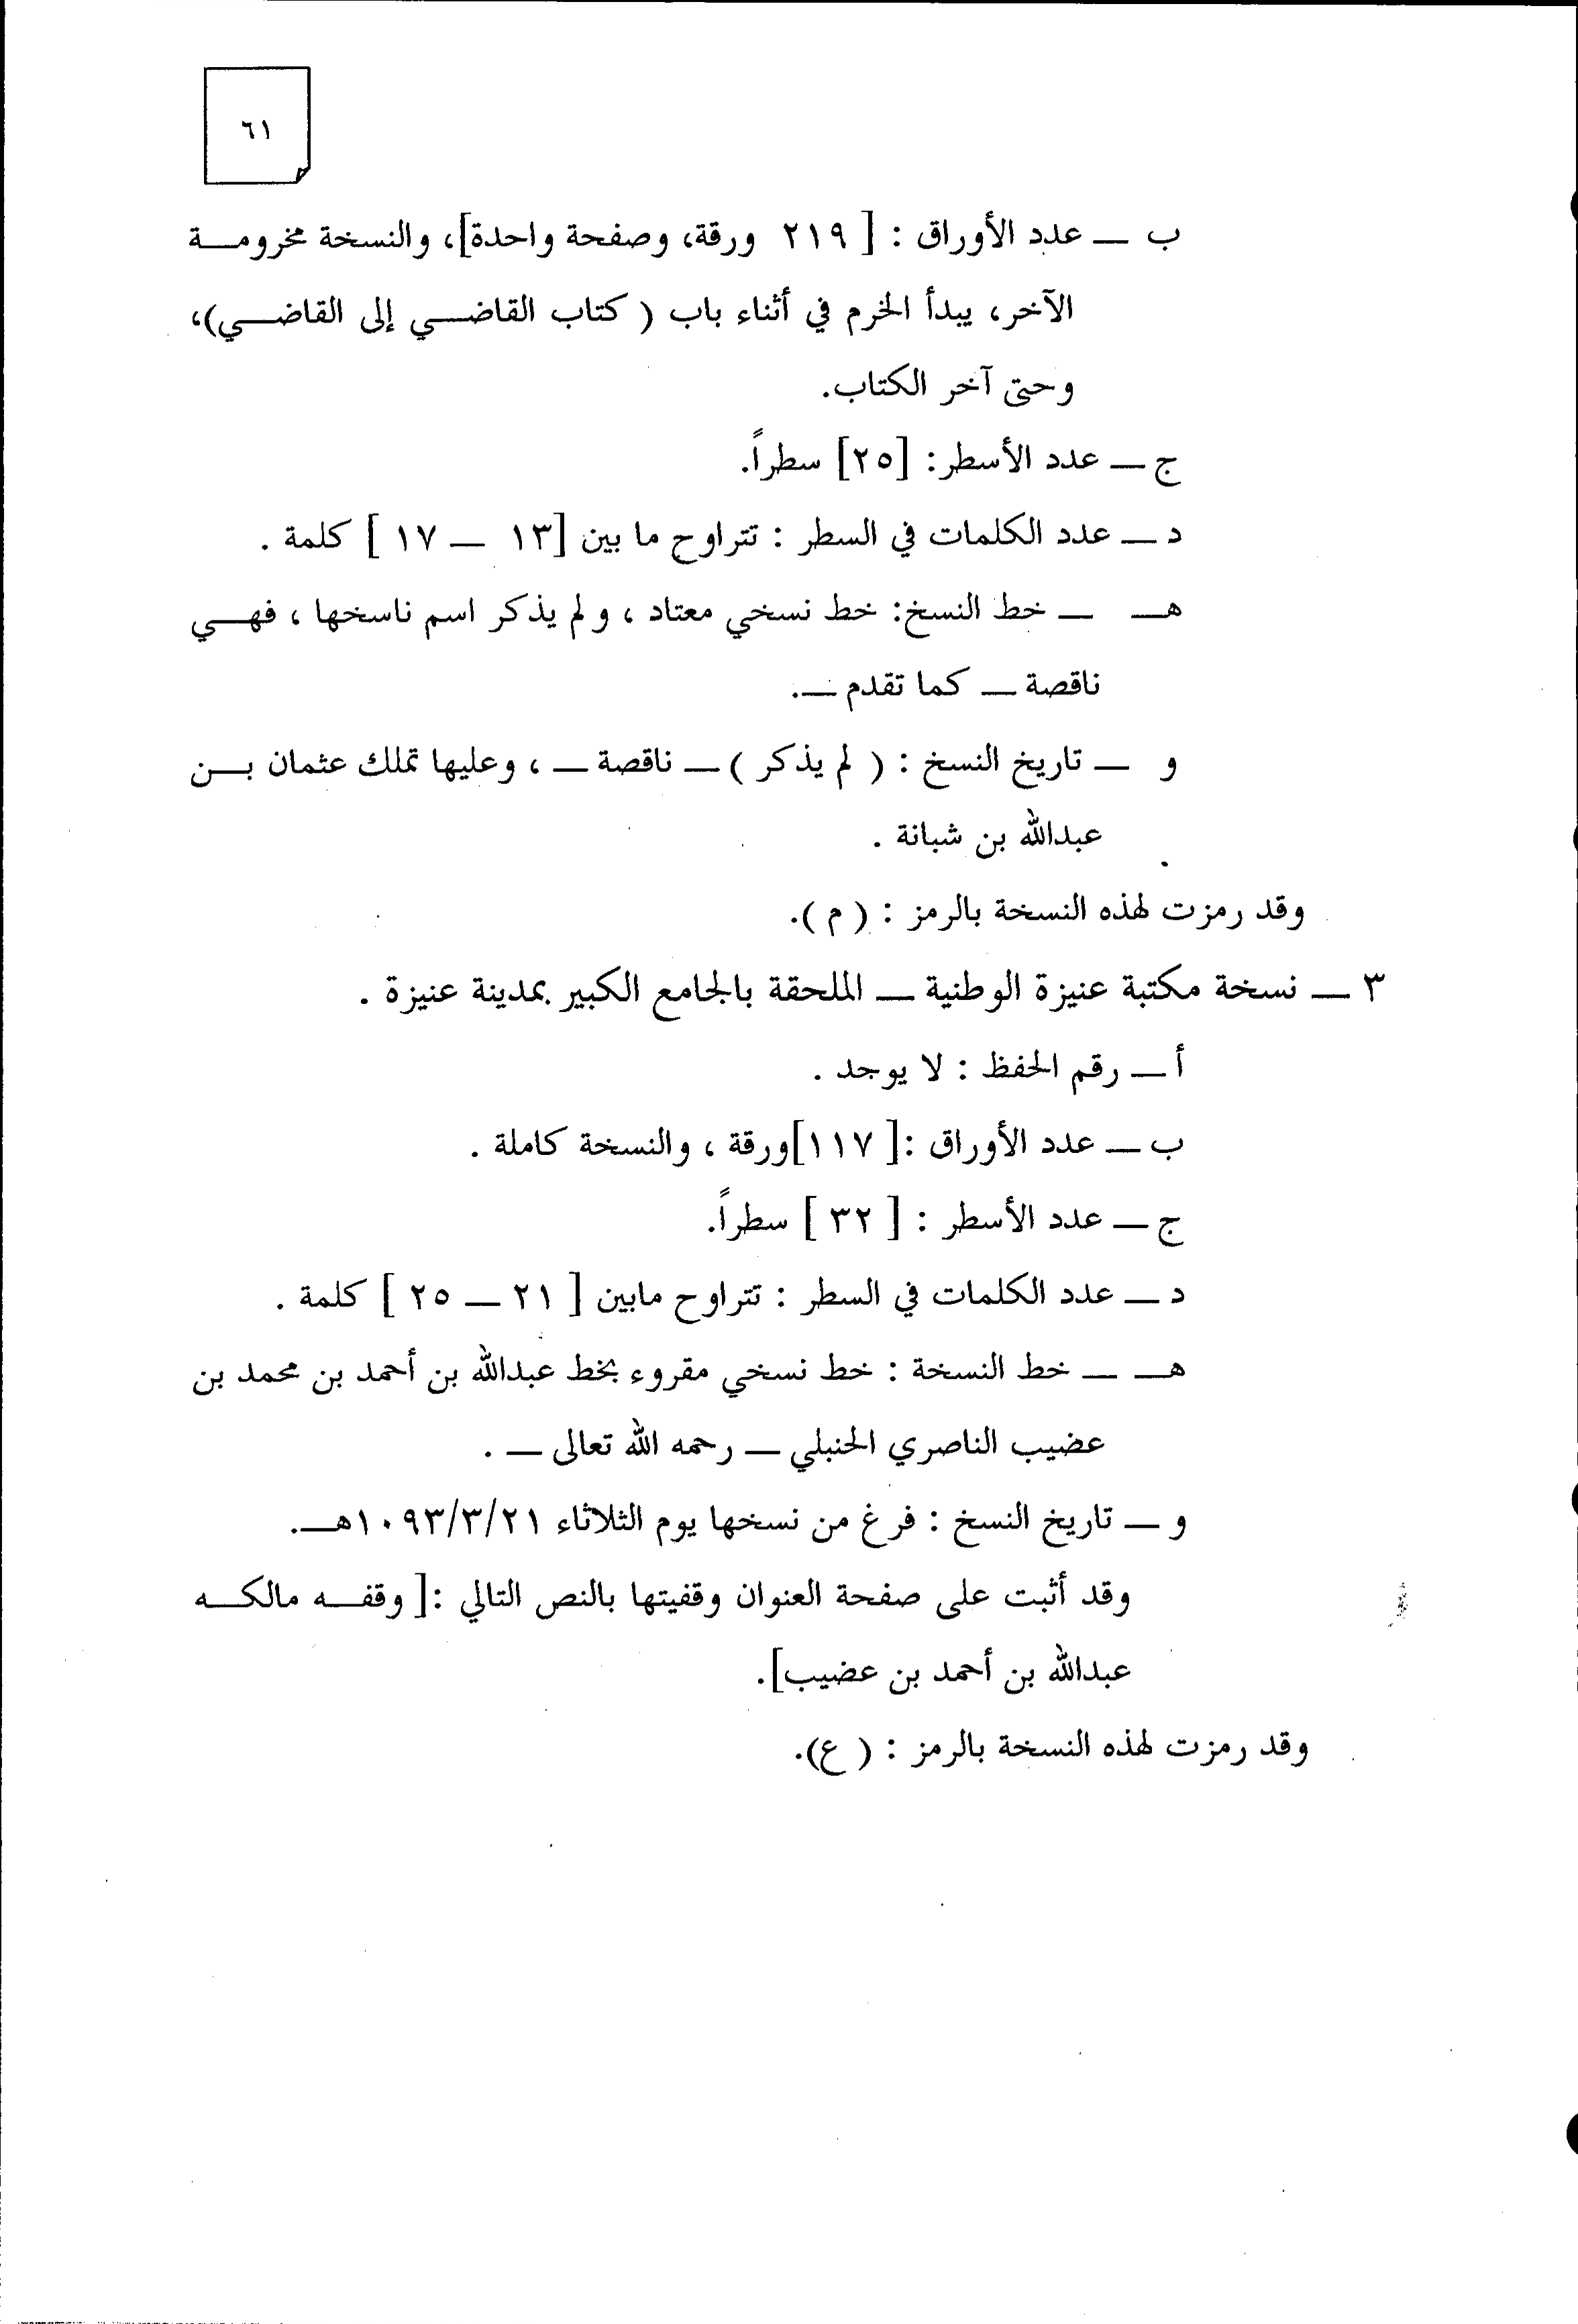 ٦١
ب ـ عدد الأوراق : [ ٢١٩ ورقة، وصفحة واحدة]، والنسخة مخرومة
الآخر، يبدأ الخرم في أثناء باب ( كتاب القاضي إلى القاضي)،
وحتى آخر الكتاب.
ج ـ عدد الأسطر: [٢٥] سطراً.
د ـ عدد الكلمات في السطر : تتراوح ما بين [١٣ ـ ١٧ ] كلمة .
هـ ـ خط النسخ: خط نسخي معتاد ، ولم يذكر اسم ناسخها ، فهي
ناقصة ـ كما تقدم ـ.
و ـ تاريخ النسخ : ( لم يذكر ) ـ ناقصة ـ ، وعليها تملك عثمان بن
عبدالله بن شبانة .
وقد رمزت لهذه النسخة بالرمز : ( م ).
٣ ـ نسخة مكتبة عنيزة الوطنية ـ الملحقة بالجامع الكبير بمدينة عنيزة .
أ ـ رقم الحفظ : لا يوجد .
ب ـ عدد الأوراق :[ ١١٧]ورقة ، والنسخة كاملة .
ج ـ عدد الأسطر : [ ٣٢ ] سطراً.
د ـ عدد الكلمات في السطر : تتراوح مابين [ ٢١ ـ ٢٥ ] كلمة .
هـ ـ خط النسخة : خط نسخي مقروء بخط عبدالله بن أحمد بن محمد بن
عضيب الناصري الحنبلي ـ رحمه الله تعالى ـ .
و ـ تاريخ النسخ : فرغ من نسخها يوم الثلاثاء ١٠٩٣/٣/٢١هـ.
وقد أثبت على صفحة العنوان وقفيتها بالنص التالي :[ وقفه مالكه
عبدالله بن أحمد بن عضيب].
وقد رمزت لهذه النسخة بالرمز : ( ع).